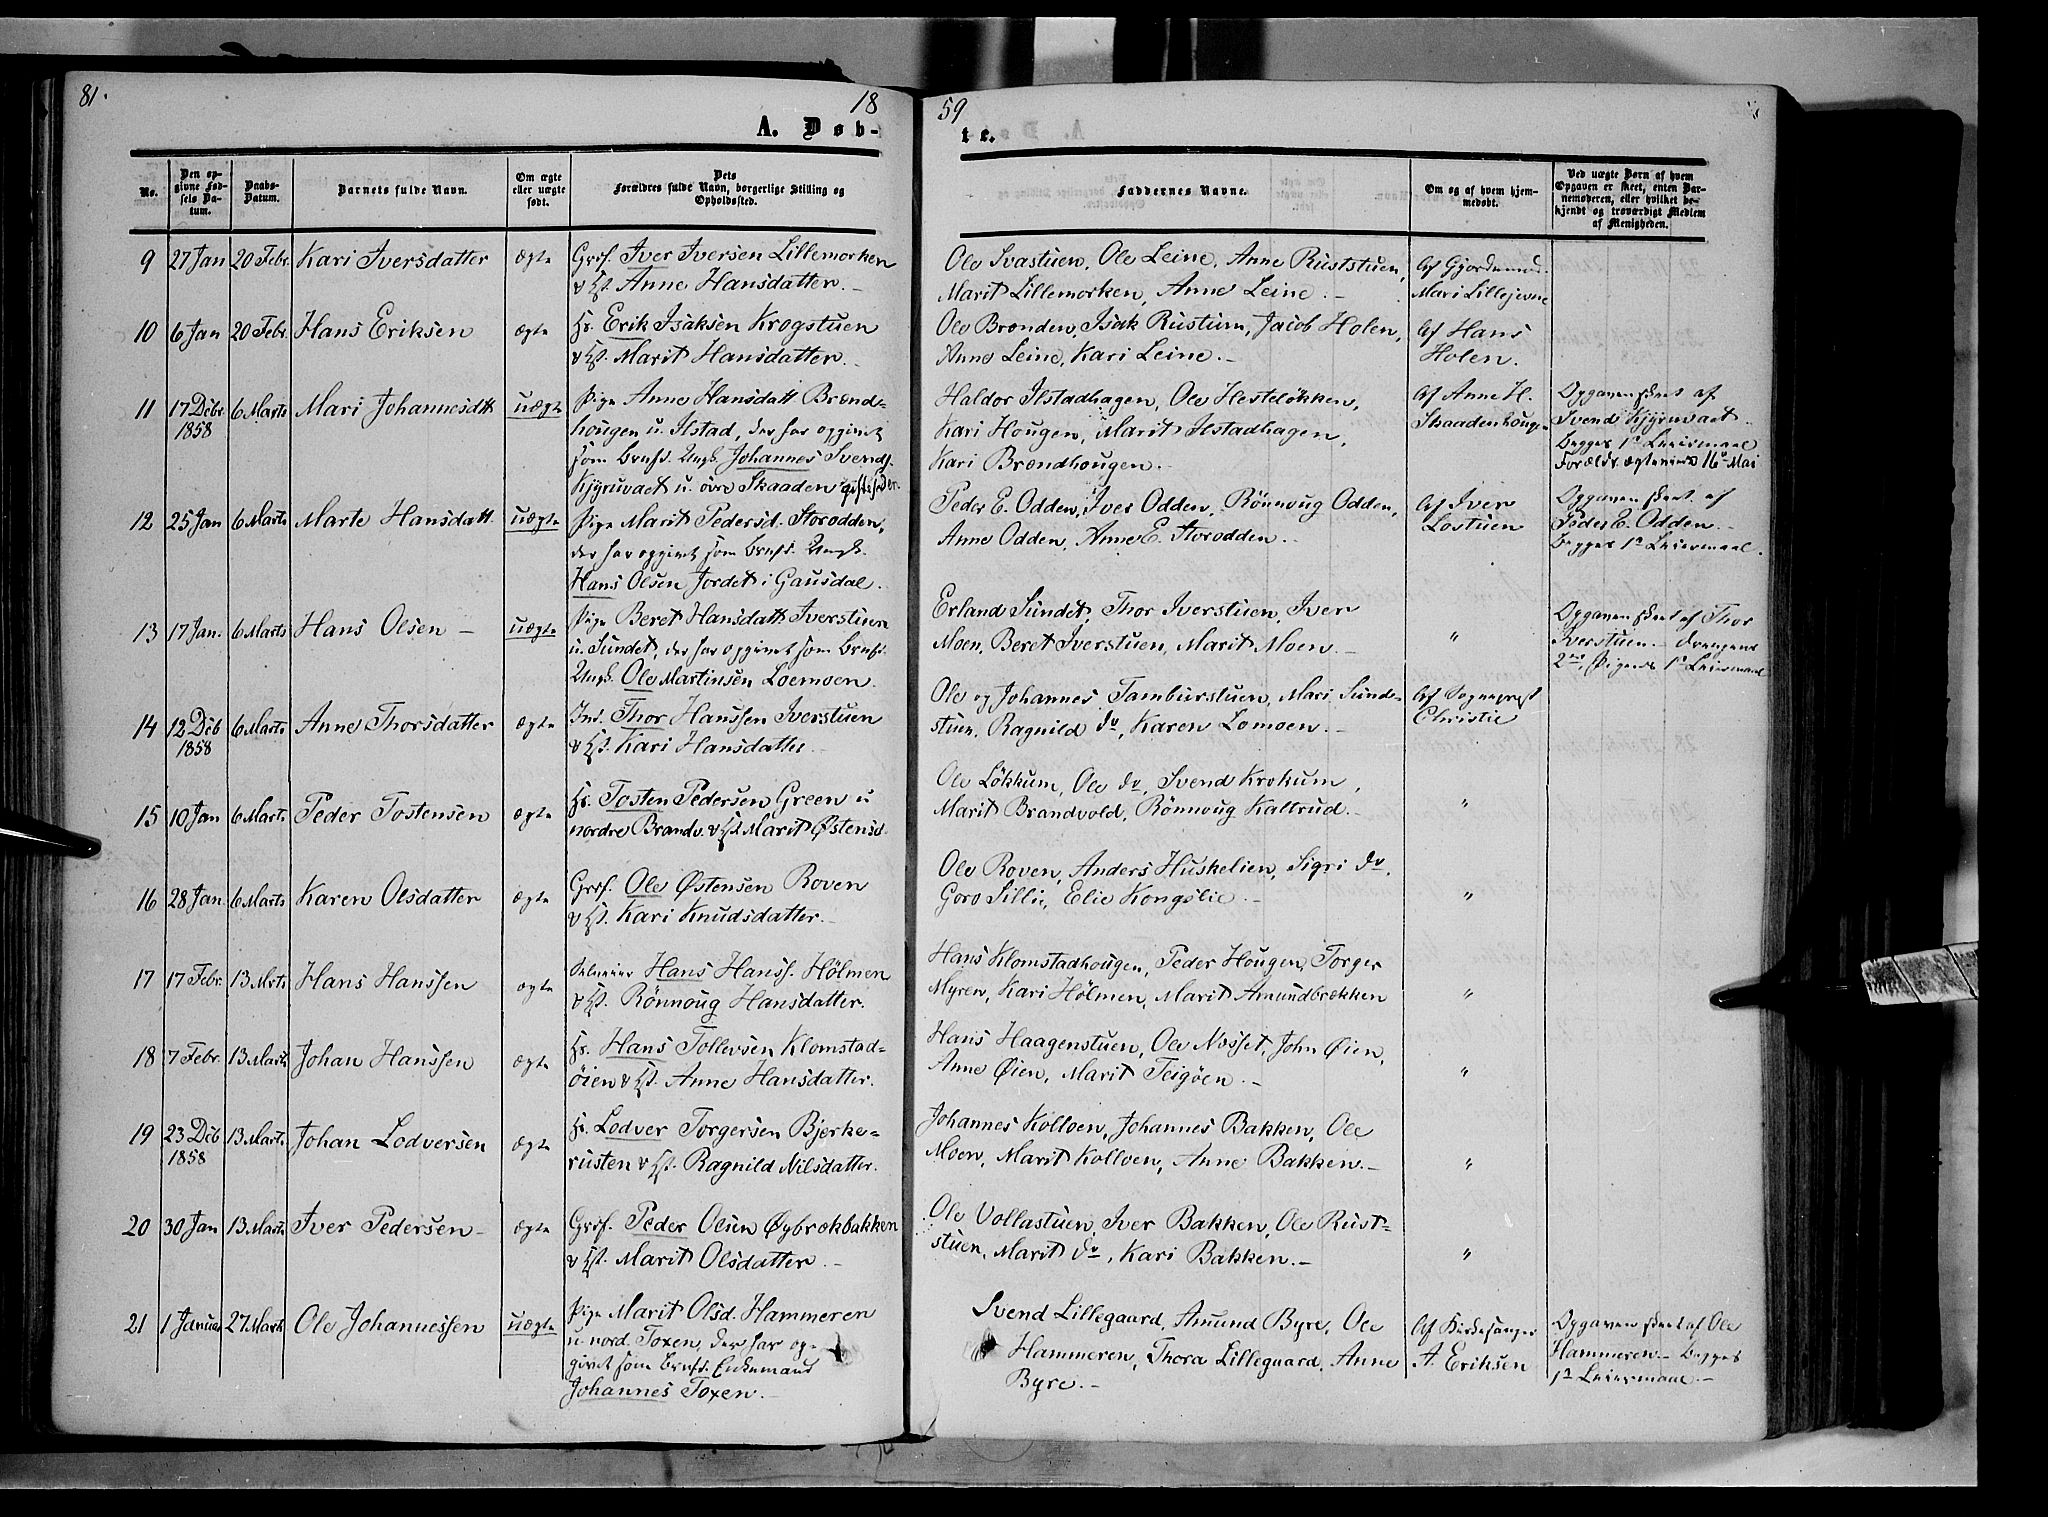 81.
18
59
A. Døb-
te.
No.
Den op-
givne Fød-
sels Da-
tum.
Daabs-
Datum.
Barnets fulde Navn.
Om ægte
eller uægte
født.
Dets
Forældres fulde Navn, borgerlige Stilling og
Opholdssted.
Faddernes Navne.
Om og af hvem hjem-
medøbt.
Ved uægte Børn af hvem
Opgaven er skeet, enten Bar-
nemoderen, eller hvilket be-
kjendt og troværdigt Medlem
af Menigheden.
9 27 Jan 20 Febr. Kari Iversdatter ægte Grdf. Iver Iversen Lillemorken
& Hst. Anne Hansdatter. –
Ole Svastuen, Ole Leine, Anne Ruststuen,
Marit Lillemorken, Anne Leine. –
Af Gjordemod.
Mari
10 6 Jan 20 Febr. Hans Eriksen ægte Hs. Erik Isaksen Krogstuen
& Hst. Marit Hansdatter. –
Ole Brenden, Isak Rustum, Jacob Holen,
Anne Leine, Kari Leine. –
Af Hans
Holen.
11 17 Dcbr 6 Marts Mari Johannesdtt uægte Pige Anne Hansdatt Brænd-
1858
hougen u. Ilstad, der har opgivet
som Brnfd. Ungk. Johannes Svends.
u. øvre Skaaden
Haldor Ilstadhagen, Ole Hesteløkken,
Kari Hougen, Marit Ilstadhagen,
Kari Brændhougen. –
Af Anne H.
Skaadenhougen
Opgaven skeet af
Svend
begges 1st Leiermaal
Forældr. 16 Mai
12 25 Jan 6 Marts Marte Hansdatt. uægte Pige Marit Pedersd. Storodden,
der har opgivet som Brnfd. Ungk.
Hans Olsen Jordet i Gausdal.
Peder E. Odden, Iver Odden, Rönnoug Odden,
Anne Odden, Anne E. Storodden. –
Af Iver
Lostuen
Opgaven skeet af
Peder E. Odden. –
begges 1st Leiermaal.
13 17 Jan. 6 Marts Hans Olsen – uægte Pige Beret Hansdatt Iverstuen
u. Sundet, der har opgivet som Brnfd.
Ungk. Ole Martinsen Loemoen.
Erland Sundet, Thor Iverstuen, Iver
Moen, Beret Iverstuen, Marit Moen. –
"
Opgaven skeet af Thor
Iverstuen. – Drengens
2det, Pigens 1st Leiermaal
14 12 Dcb 6 Marts Anne Thorsdatter ægte Ind. Thor Hanssen Iverstuen
1858
& Hst. Kari Hansdatter –
Ole og Johannes Tamburstuen, Mari Sund-
stuen, Ragnild do, Karen Lomoen. –
Af Sogneprest
Christie
15 10 Jan 6 Marts Peder Tostensen ægte Hs. Tosten Pedersen Green u
nordre Brandv. & Hst Marit Østensd.
Ole Løkkum, Ole do, Svend Krokum,
Marit Brandvold, Rönnoug Kaltrud. –
"
16 28 Jan. 6 Marts Karen Olsdatter ægte Grdf. Ole Østensen Roven
& Hst. Kari Knudsdatter. –
Ole Roven, Anders Huskelien, Sigri do,
Goro Lillie, Elie Kongslie. –
"
17 17 Febr. 13 Mrts Hans Hanssen ægte Hans Hanss. Hölmen
& Hst. Rönnoug Hansdatter.
Hans Klomstadhougen, Peder Hougen, Torger
Myren, Kari Hölmen, Marit Amundbrækken
"
18 7 Febr. 13 Marts Johan Hanssen ægte Hs. Hans Tollevsen Klomstad-
øien & Hst. Anne Hansdatter.
Hans Haagenstuen, Ole Nosset, John Øien,
Anne Øien, Marit Teigöen. –
"
19 23 Dcb 13 Marts Johan Lodversen ægte Hs. Lodver Torgersen Bjerke-
1858
rusten & Hst. Ragnild Nilsdatter.
Johannes Kolloen, Johannes Bakken, Ole
Moen, Marit Kolloen, Anne Bakken. –
"
20 30 Jan 13 Marts Iver Pedersen – ægte Grdf. Peder Olsen Øybrekbakken
& Hst. Marit Olsdatter. –
Ole Vollastuen, Iver Bakken, Ole Rust-
stuen, Marit do, Kari Bakken. –
"
21 1 Januar 27 Marts Ole Johannessen uægte Pige Marit Olsd. Hammeren
u. nord. Toxen, der har op-
givet som Brnfd. Enkemand
Johannes Toxen. –
Svend Lillegaard, Amund Byre, Ole
Hammeren, Thora Lillegaard, Anne
Byre. –
Af Kirkesanger
A. Eriksen
Opgaven skeet af Ole
Hammeren – begges
1st Leiermaal. –